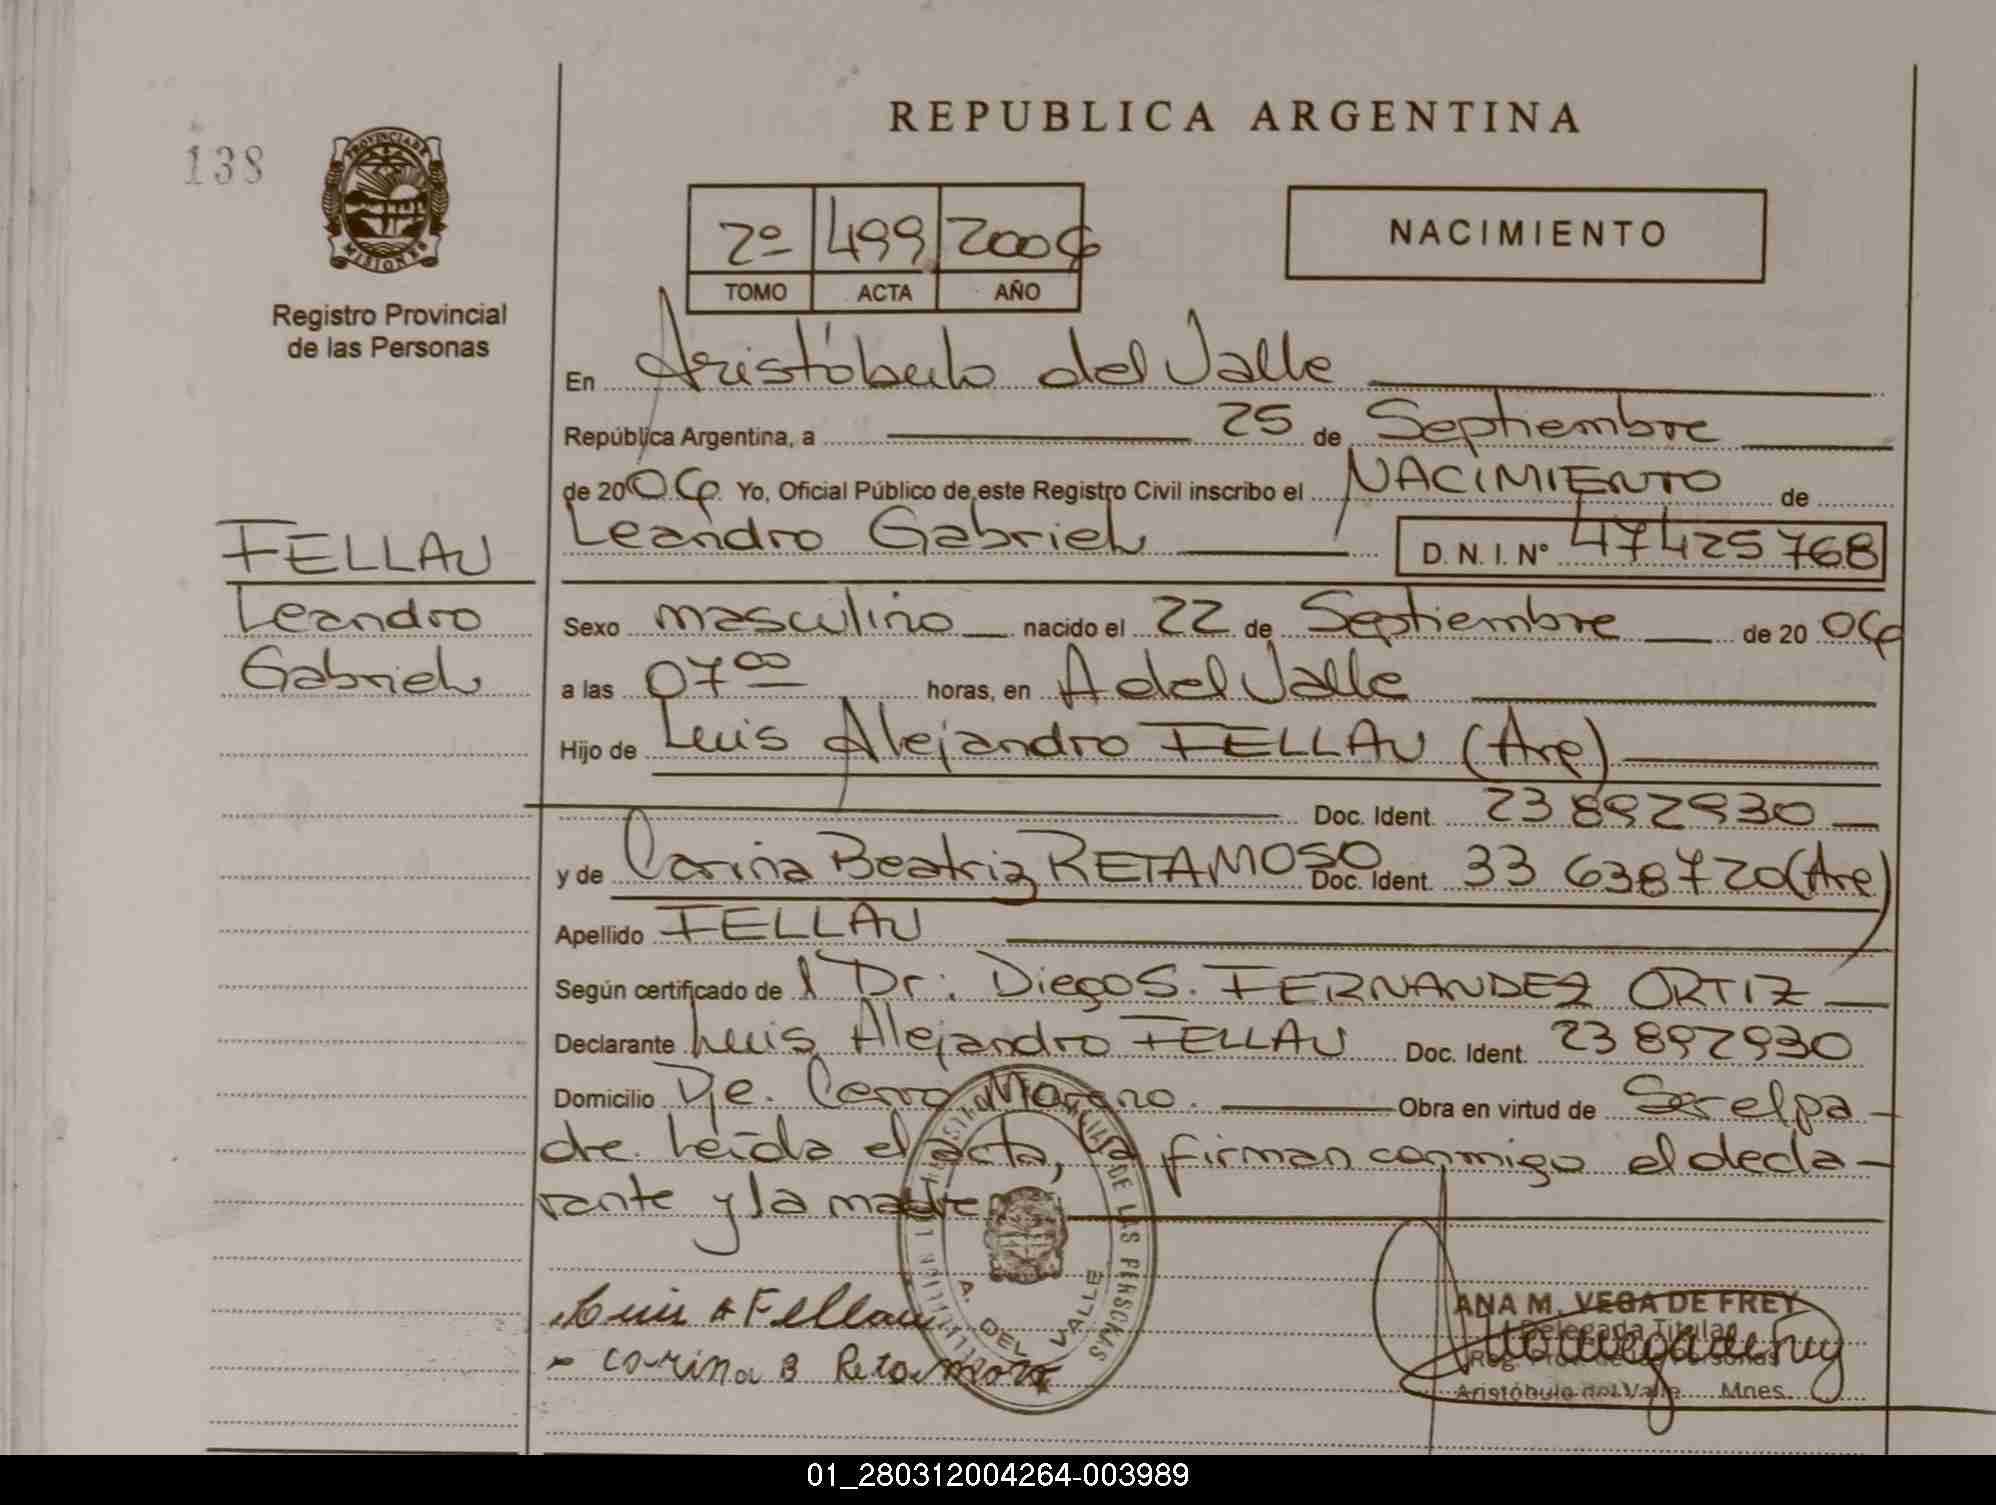 REPUBLICA ARGENTINA
138
PROVINCIA DE MISIONES
2º 499 2006
TOMO ACTA AÑO
NACIMIENTO
Registro Provincial
de las Personas
En Aristóbulo del Valle
República Argentina, a 25 de Septiembre
de 2006 Yo, Oficial Público de este Registro Civil inscribo el NACIMIENTO de
Leandro Gabriel D. N. I. Nº 47425768
FELLAU
Leandro
Gabriel
Sexo masculino nacido el 22 de Septiembre de 2006
a las 07 00 horas, en A del Valle
Hijo de Luis Alejandro FELLAU (Arg)
Doc. Ident. 23 892930
y de Carina Beatriz RETAMOSO Doc. Ident. 33 638720 (Arg)
Apellido FELLAU
Según certificado de l Dr. Diego S. FERNANDEZ ORTIZ
Declarante Luis Alejandro FELLAU Doc. Ident. 23 892930
Domicilio Pje. Cerro Moreno. Obra en virtud de Ser el pa-
dre. Leída el acta, la firman conmigo el decla-
rante y la madre
Luis A Fellau
Carina B Retamozo
DE LAS PERSONAS
A. DEL VALLE
ANA M. VEGA DE FREY
Delegada Titular
Reg. Prov. de las Personas
Aristóbulo del Valle Mnes.
01_280312004264-003989